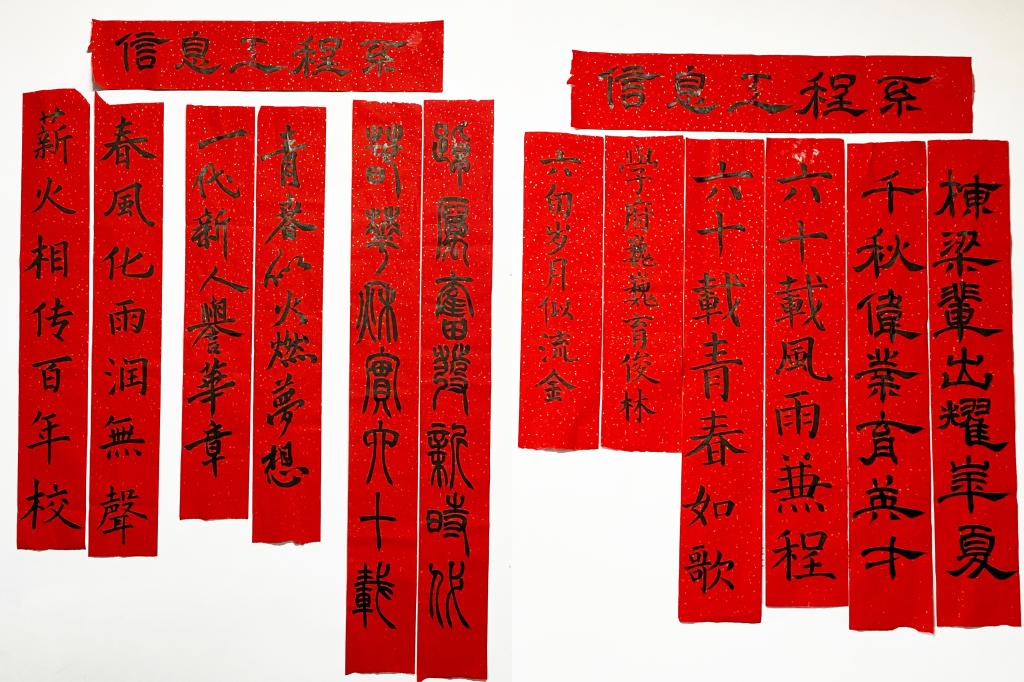 信息工程系
踔厲奮發新時代
春華秋實六十載
青春似火燃夢想
一代新人譽華章
春風化雨润無聲
薪火相传百年校
信息工程系
棟梁輩出耀華夏
千秋偉業育英才
六十載風雨兼程
六十載青春如歌
學府巍巍育俊林
六旬岁月似流金